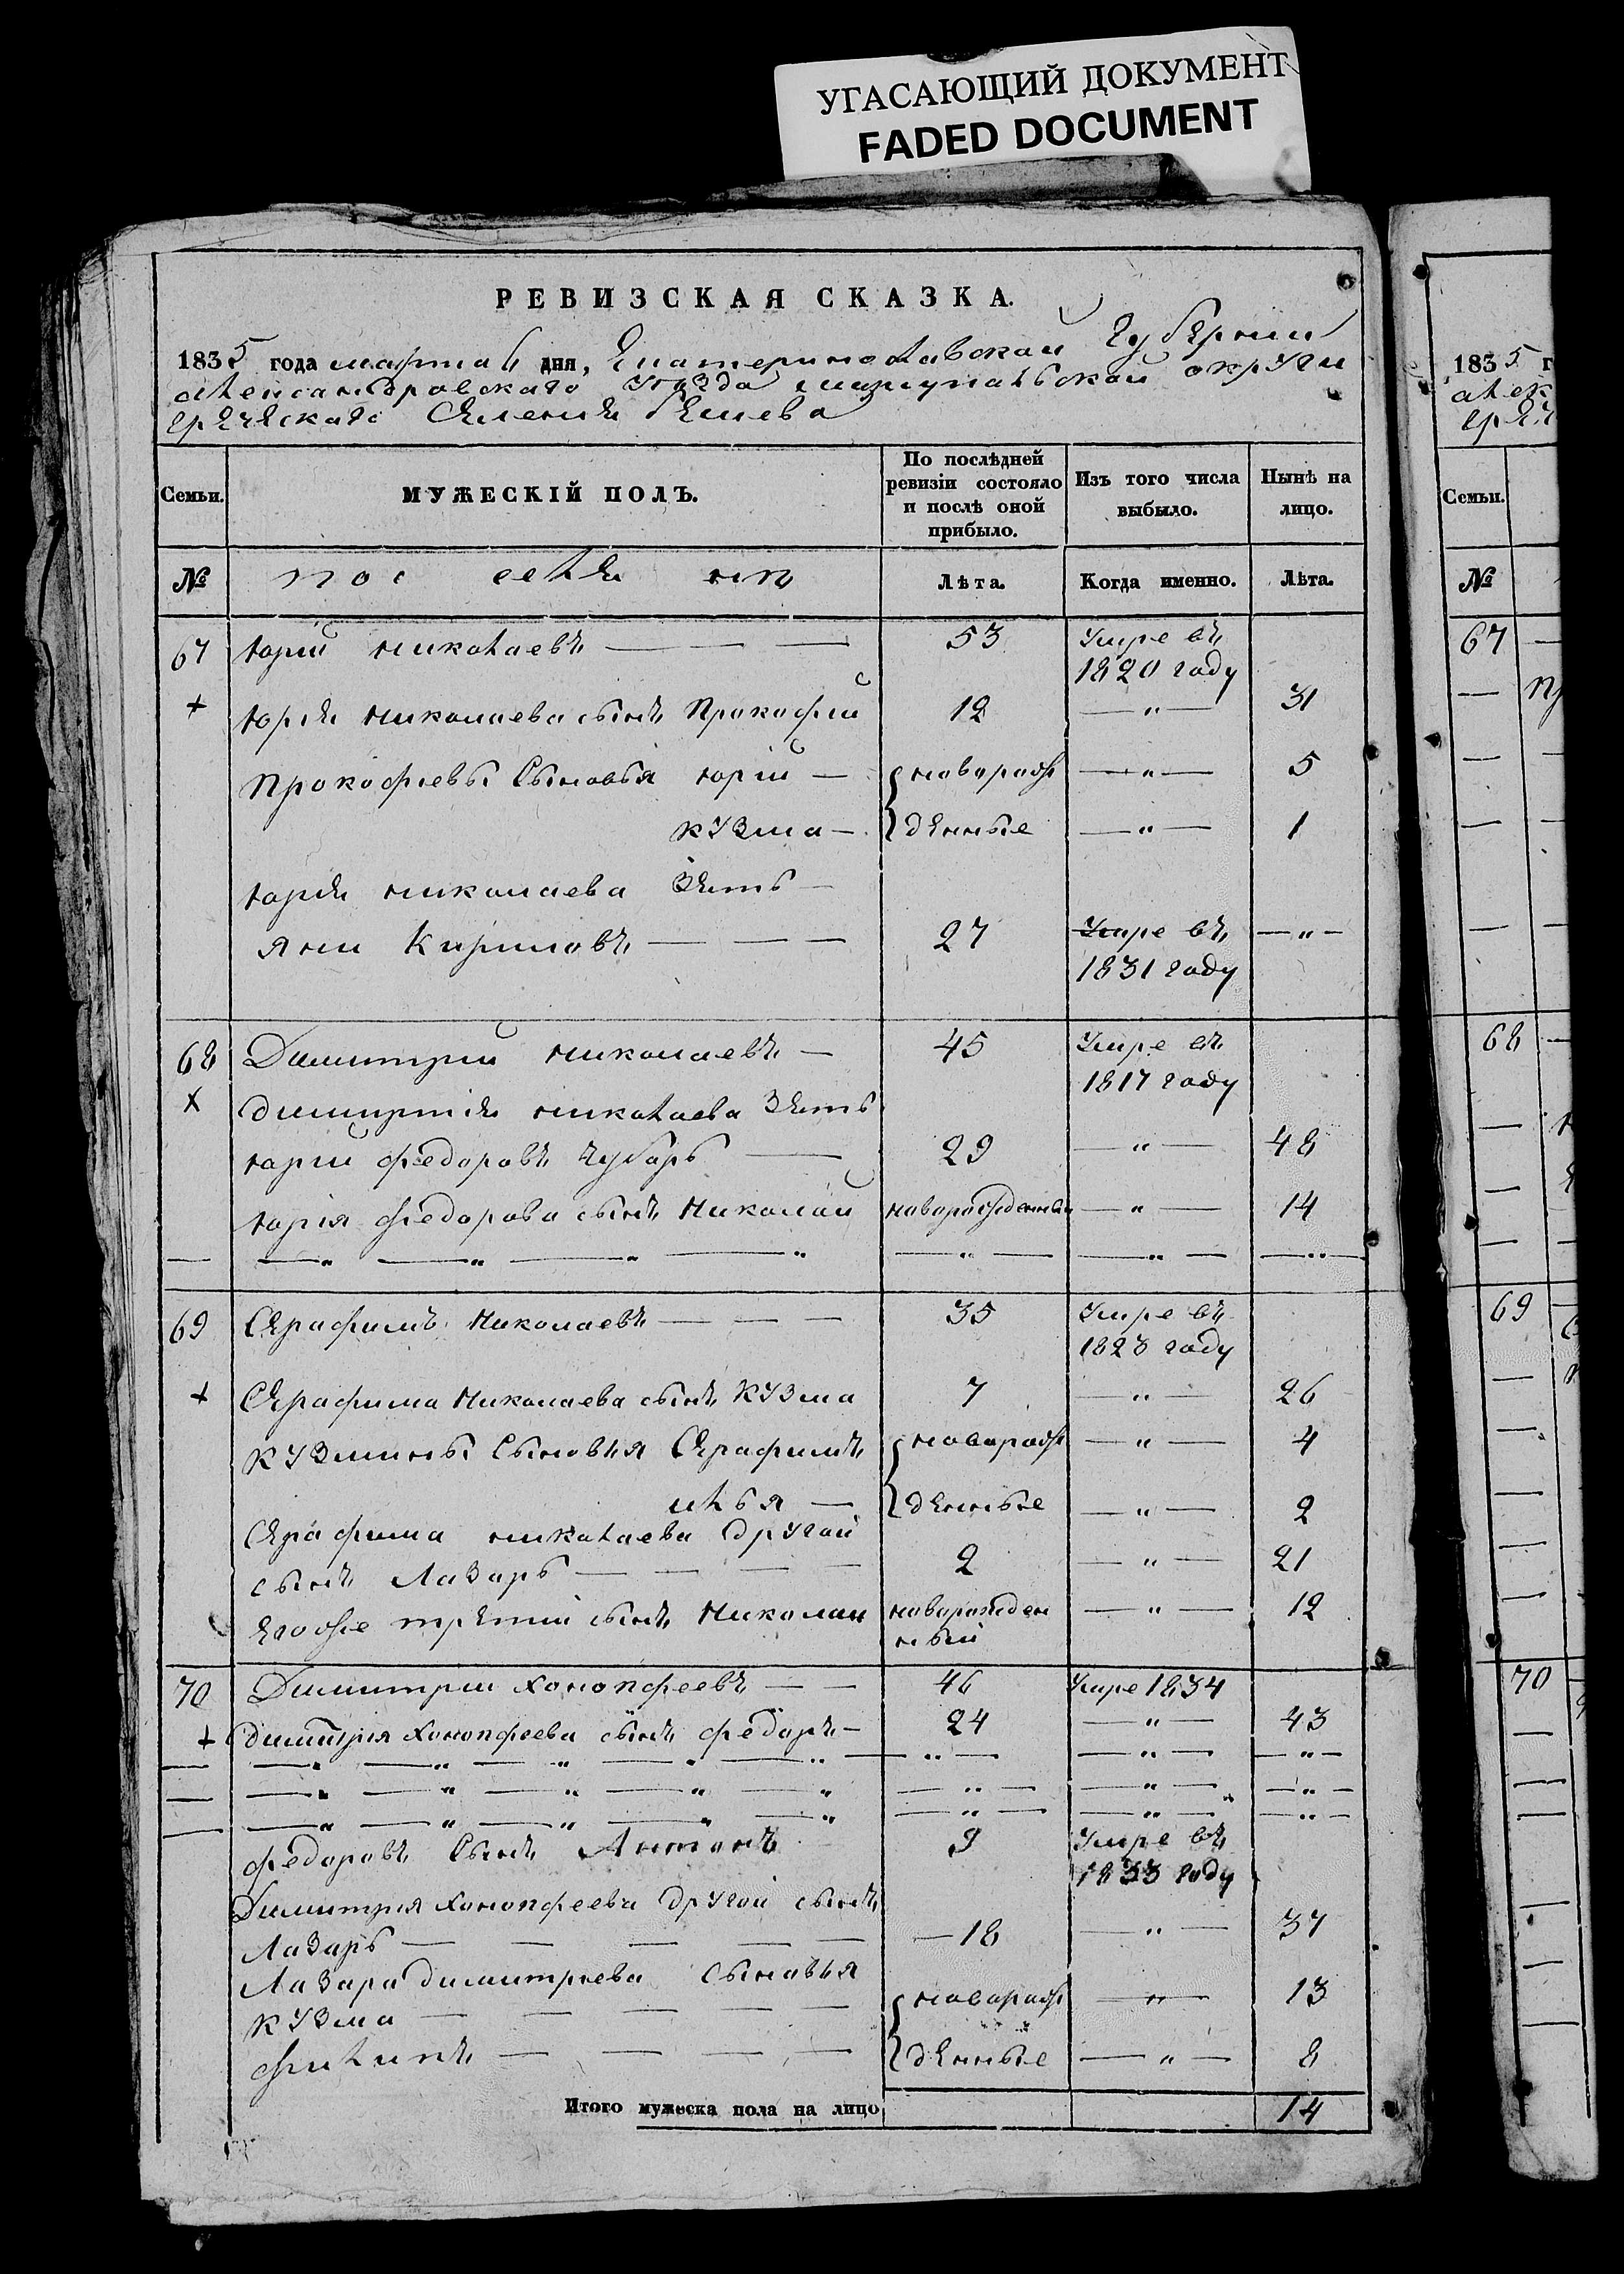 УГАСАЮЩИЙ ДОКУМЕНТ
FADED DOCUMENT
РЕВИЗСКАЯ СКАЗКА.
1835 года марта дня, Екатеринославской Губернии
александровскаго уезда мариупальской округи
греческаго селения Бешева
Семьи.
МУЖЕСКІЙ ПОЛЪ.
По послѣдней ревизіи состояло и послѣ оной прибыло.
Изъ того числа выбыло.
Нынѣ на лицо.
№
посселяне
Лѣта.
Когда именно.
Лѣта.
67 юрий николаевъ — — — 53 Умре въ
1820 году
+ юрия николаева сынъ Прокофий 12 — " — 31
Прокофиевы сыновья юрий — новорож — " — 5
кузма — денные — " — 1
юрия николаева зять —
яни Кириловъ — — — 27 Умре въ — " —
1831 году
68 Димитрий николаевъ — 45 Умре въ
1817 году
х димитрия николаева зять
юрий федоровъ чубарь — 29 — " — 48
юрия федорова сынъ Николай новорожденный — " — 14
— — " — " — " — " — " — — " — — " —
69 Серафимъ Николаевъ — — — 35 Умре въ
1828 году
+ Серафима Николаева сынъ кузма 7 — " — 26
кузмины сыновья Серафимъ новорож — " — 4
илья — денные — " — 2
Серафима николаева другой
сынъ Лазарь — — — 2 — " — 21
егоже третий сынъ Николаи новорожден — " — 12
ный
70 Димитрии хонопфеевъ — — 46 Умре 1834
+ димитрия хонопфеева сынъ федаръ — 24 — " — 43
— — " — " — " — " — " — " — — " — — " —
— — " — " — " — " — " — " — — " — — " —
— — " — " — " — " — " — " — — " — — " —
федоровъ сынъ Антонъ 9 Умре въ
1833 году
Димитрия хонопфеева другой сынъ
Лазарь — — — — — — 18 — " — 37
Лазаря димитриева сыновья
кузма — — — — — новорож — " — 13
филипъ — — — — денные — " — 8
Итого мужеска пола на лицо 14
1835 г
алек
греч
Семьи.
№
67 —
— пр
— —
— —
— —
68 —
—
—
— —
69 —
—
— —
— —
— —
—
70 —
—
— —
— —
—
—
—